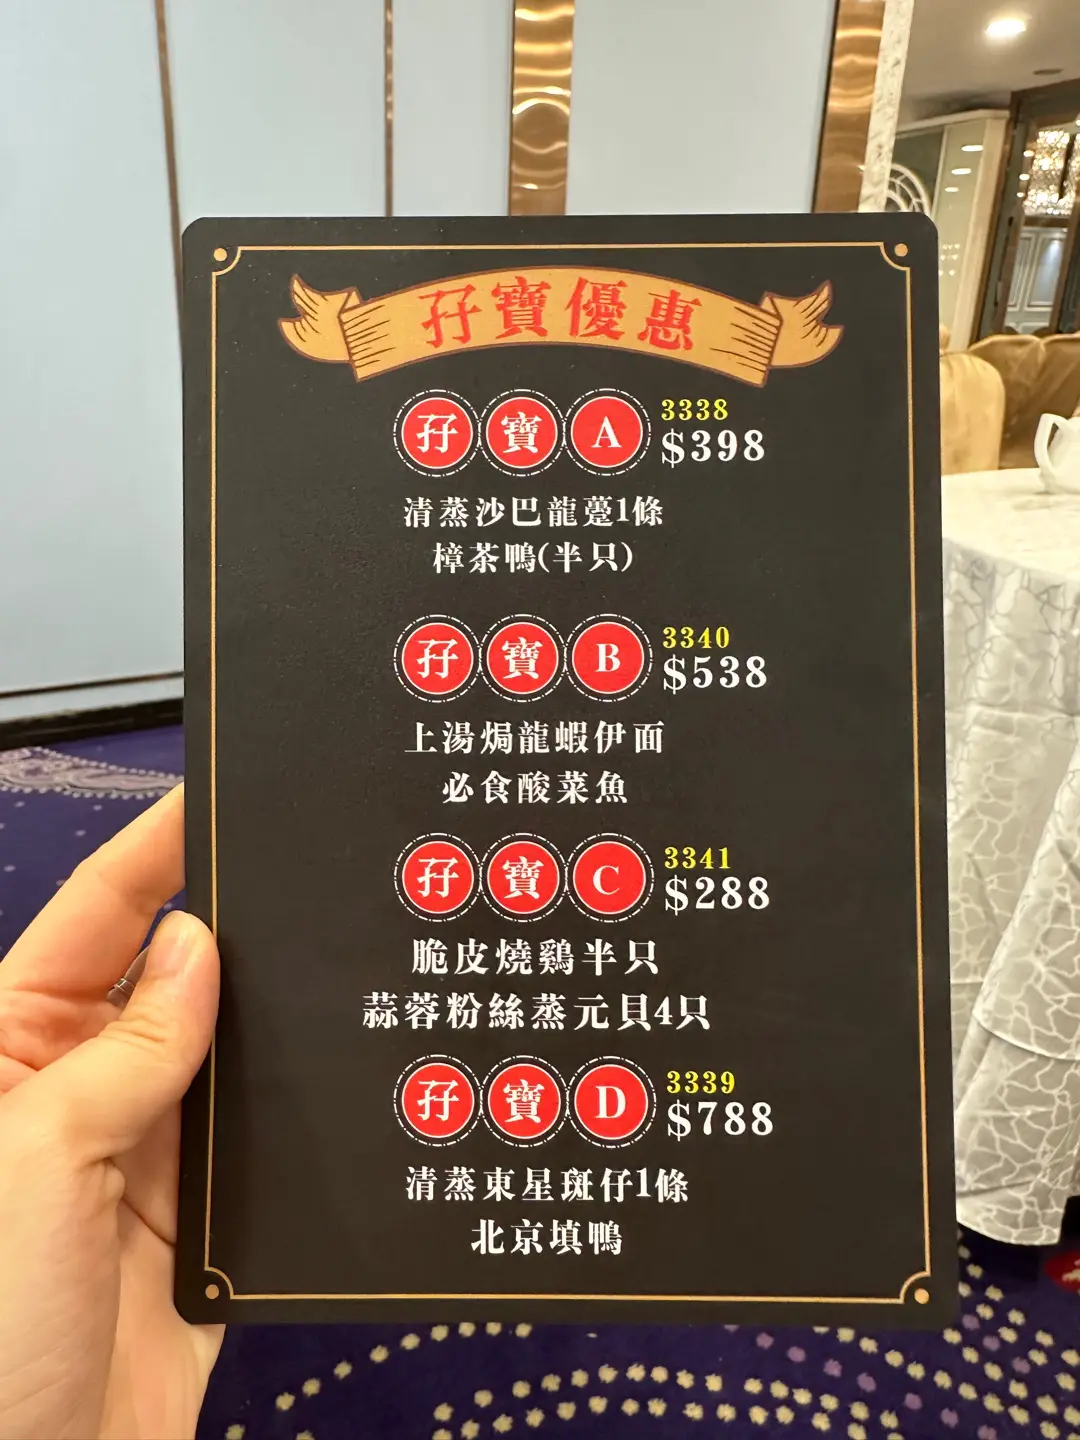 孖寶優惠
孖寶A 3338
$398
清蒸沙巴龍躉1條
樟茶鴨(半只)
孖寶B 3340
$538
上湯焗龍蝦伊面
必食酸菜魚
孖寶C 3341
$288
脆皮燒鷄半只
蒜蓉粉絲蒸元貝4只
孖寶D 3339
$788
清蒸東星斑仔1條
北京填鴨